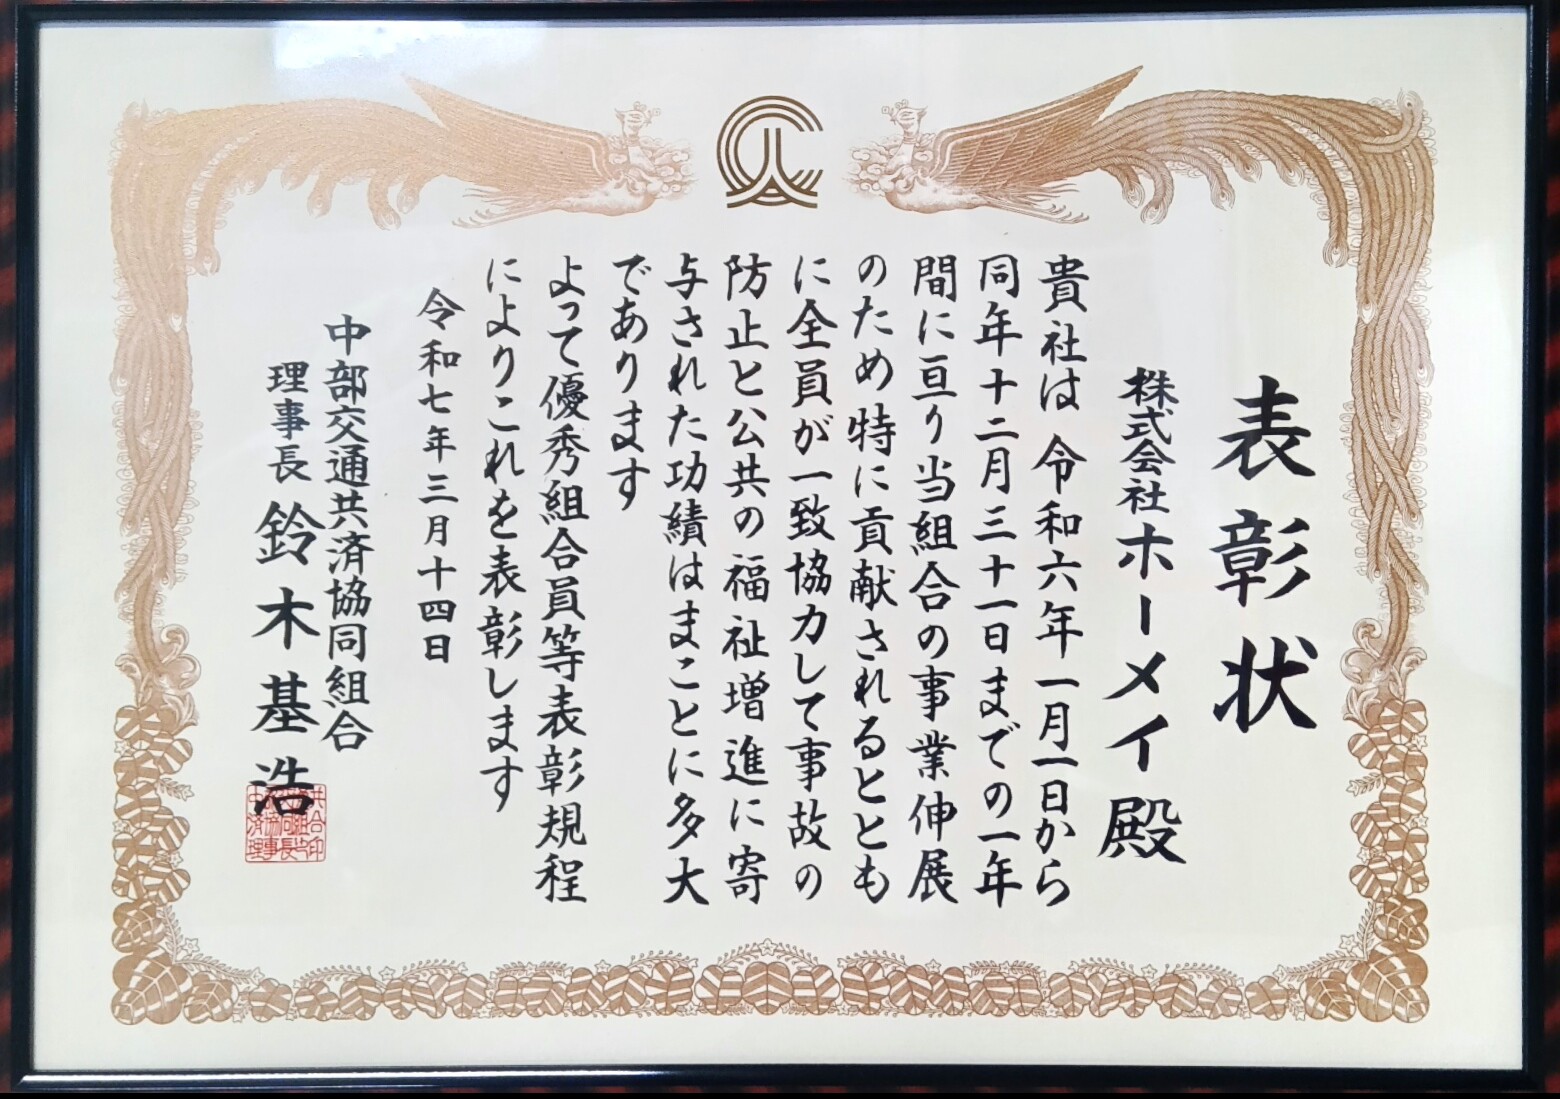 表彰状
株式会社ホーメイ殿
貴社は令和六年一月一日から
同年十二月三十一日までの一年
間に亘り当組合の事業伸展
のため特に貢献されるととも
に全員が一致協力して事故の
防止と公共の福祉増進に寄
与された功績はまことに多大
であります
よって優秀組合員等表彰規程
によりこれを表彰します
令和七年三月十四日
中部交通共済協同組合
理事長 鈴木基浩